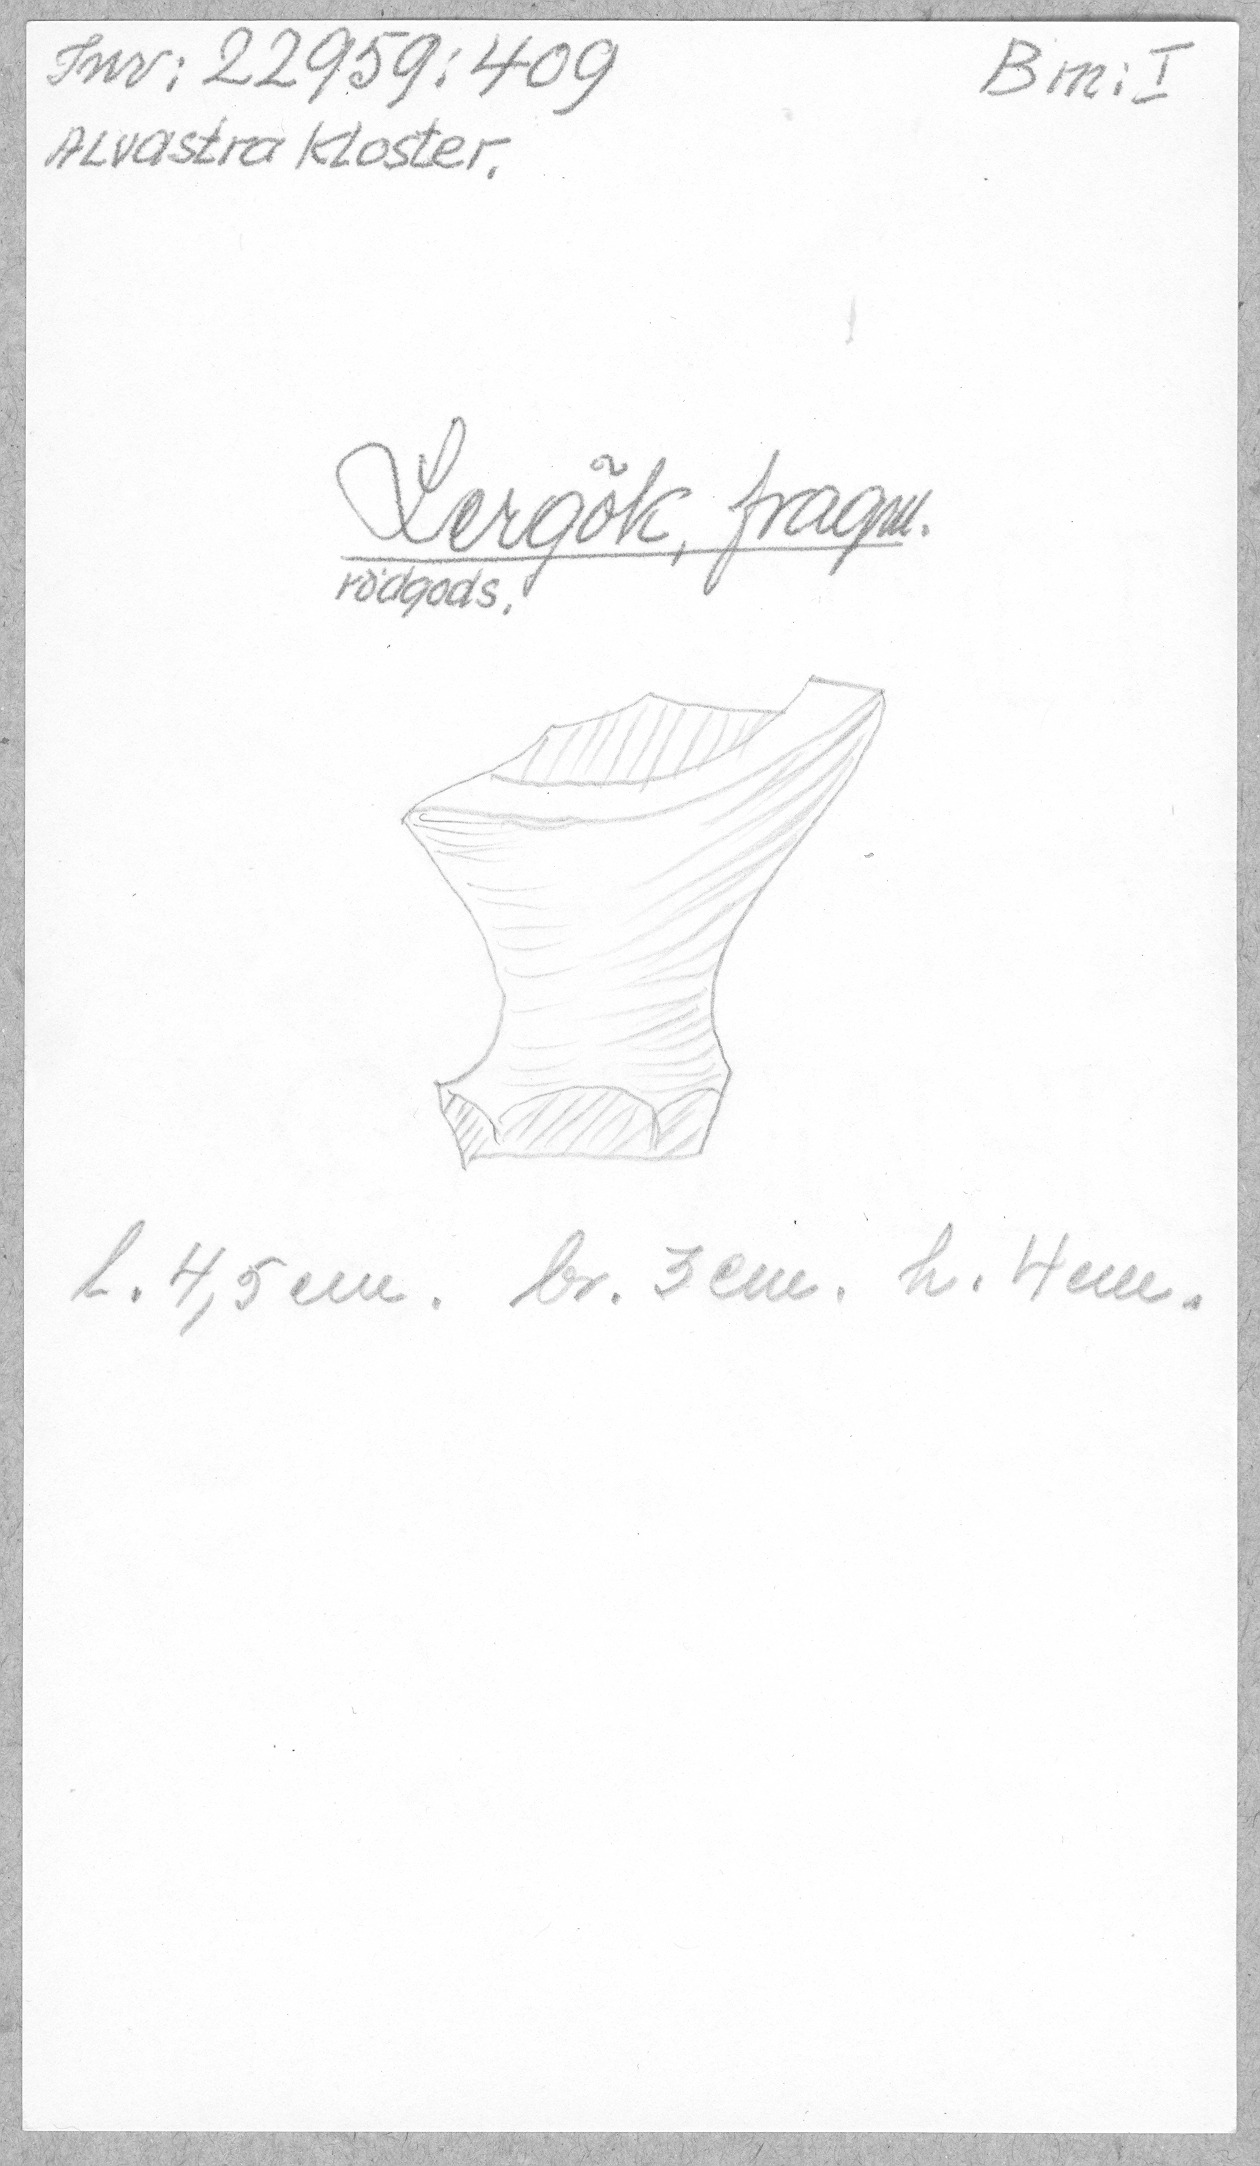 Inv: 22959:409
Bm: I
Alvastra Kloster.
Lergök, fragm.
rödgods.
l. 4,5 cm. br. 3 cm. h. 4 cm.